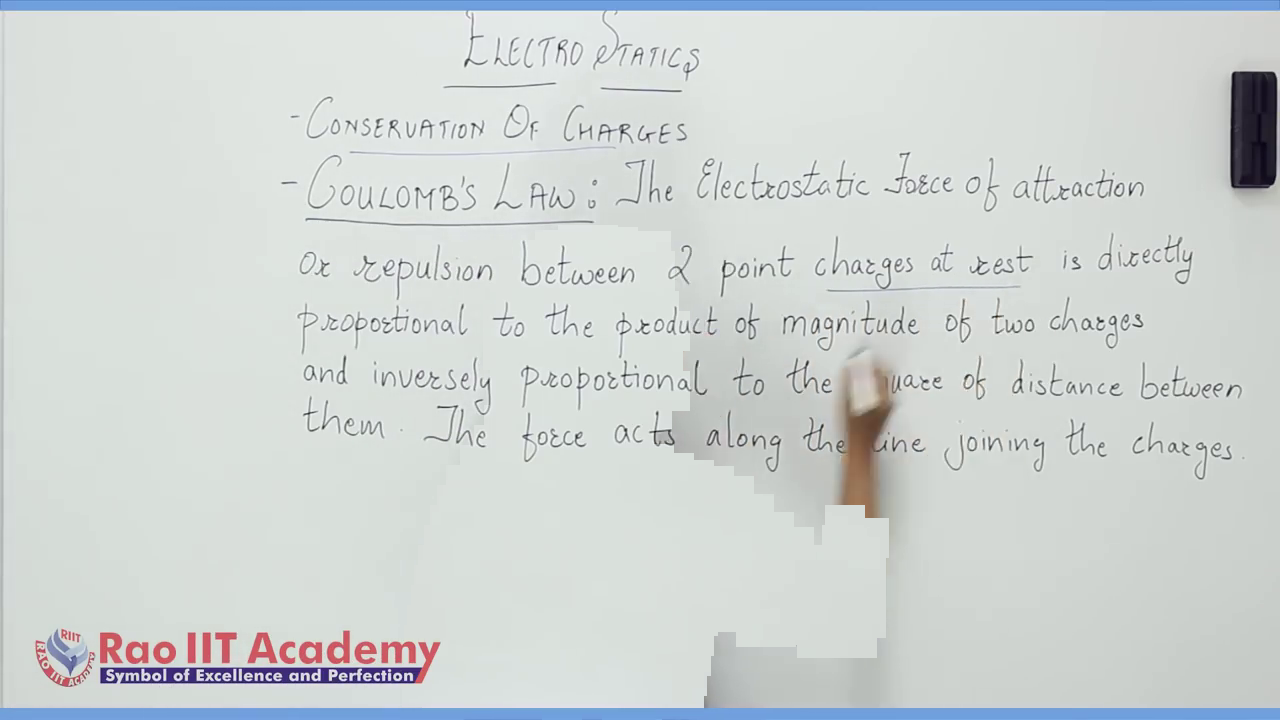 ELECTROSTATICS
- CONSERVATION OF CHARGES
- COULOMB'S LAW : The Electrostatic Force of attraction
or repulsion between 2 point charges at rest is directly
proportional to the product of magnitude of two charges
and inversely proportional to the of distance between
them. The force acts along the line joining the charges.
RIIT
RAO IIT ACADEMY
Rao IIT Academy
Symbol of Excellence and Perfection